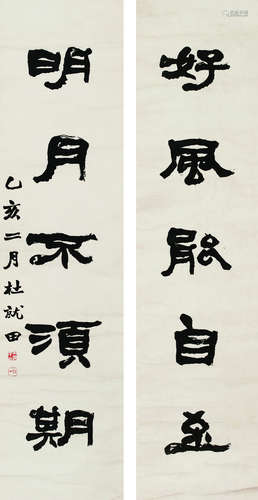 好風能自至
明月不須期
乙亥二月杜就田